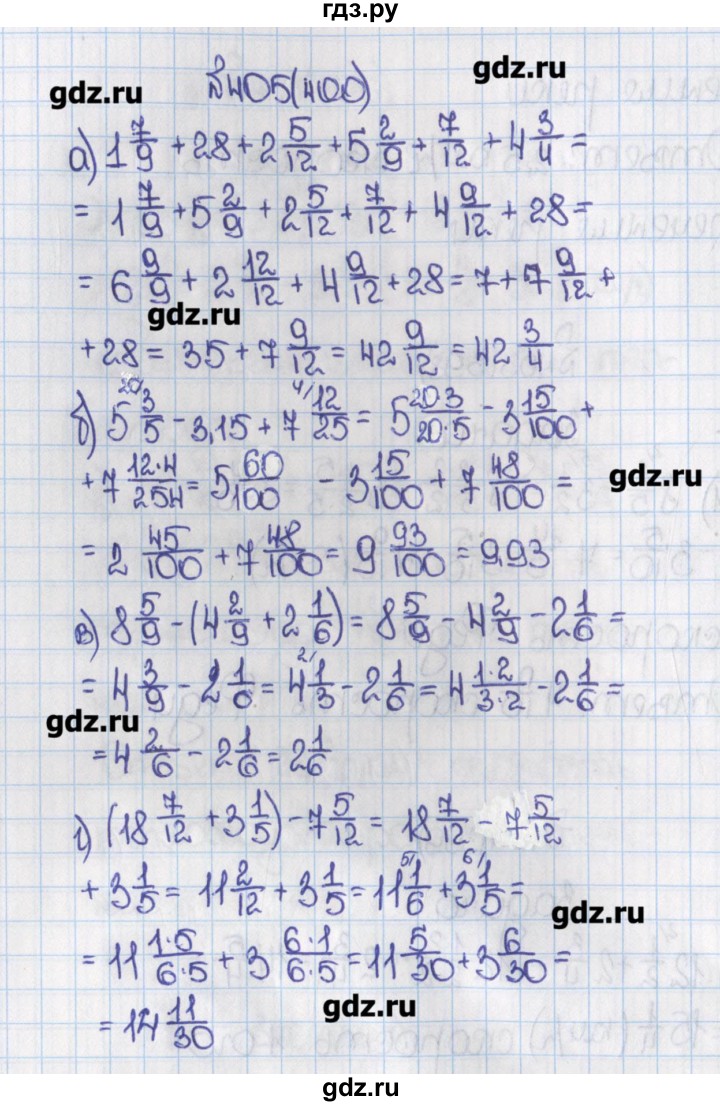 гдз.ру
gdz.ru
gdz.ru
№405(400)
а) 1 7/9 + 28 + 2 5/12 + 5 2/9 + 7/12 + 4 3/4 =
= 1 7/9 + 5 2/9 + 2 5/12 + 7/12 + 4 9/12 + 28 =
= 6 9/9 + 2 12/12 + 4 9/12 + 28 = 7 + 7 9/12 +
gdz.ru
+ 28 = 35 + 7 9/12 = 42 9/12 = 42 3/4
б) 5 20/ 3/5 - 3,15 + 7 4/ 12/25 = 5 20·3/20·5 - 3 15/100 +
+ 7 12·4/25 4 = 5 60/100 - 3 15/100 + 7 48/100 =
gdz.ru
= 2 45/100 + 7 48/100 = 9 93/100 = 9,93
в) 8 5/9 - (4 2/9 + 2 1/6) = 8 5/9 - 4 2/9 - 2 1/6 =
= 4 3/9 - 2 1/6 = 4 2/ 1/3 - 2 1/6 = 4 1·2/3·2 - 2 1/6 =
gdz.ru
= 4 2/6 - 2 1/6 = 2 1/6
г) (18 7/12 + 3 1/5) - 7 5/12 = 18 7/12 - 7 5/12
+ 3 1/5 = 11 2/12 + 3 1/5 = 11 5/ 1/6 + 3 6/ 1/5 =
gdz.ru
= 11 1·5/6·5 + 3 6·1/6·5 = 11 5/30 + 3 6/30 =
gdz.ru
= 14 11/30
gdz.ru